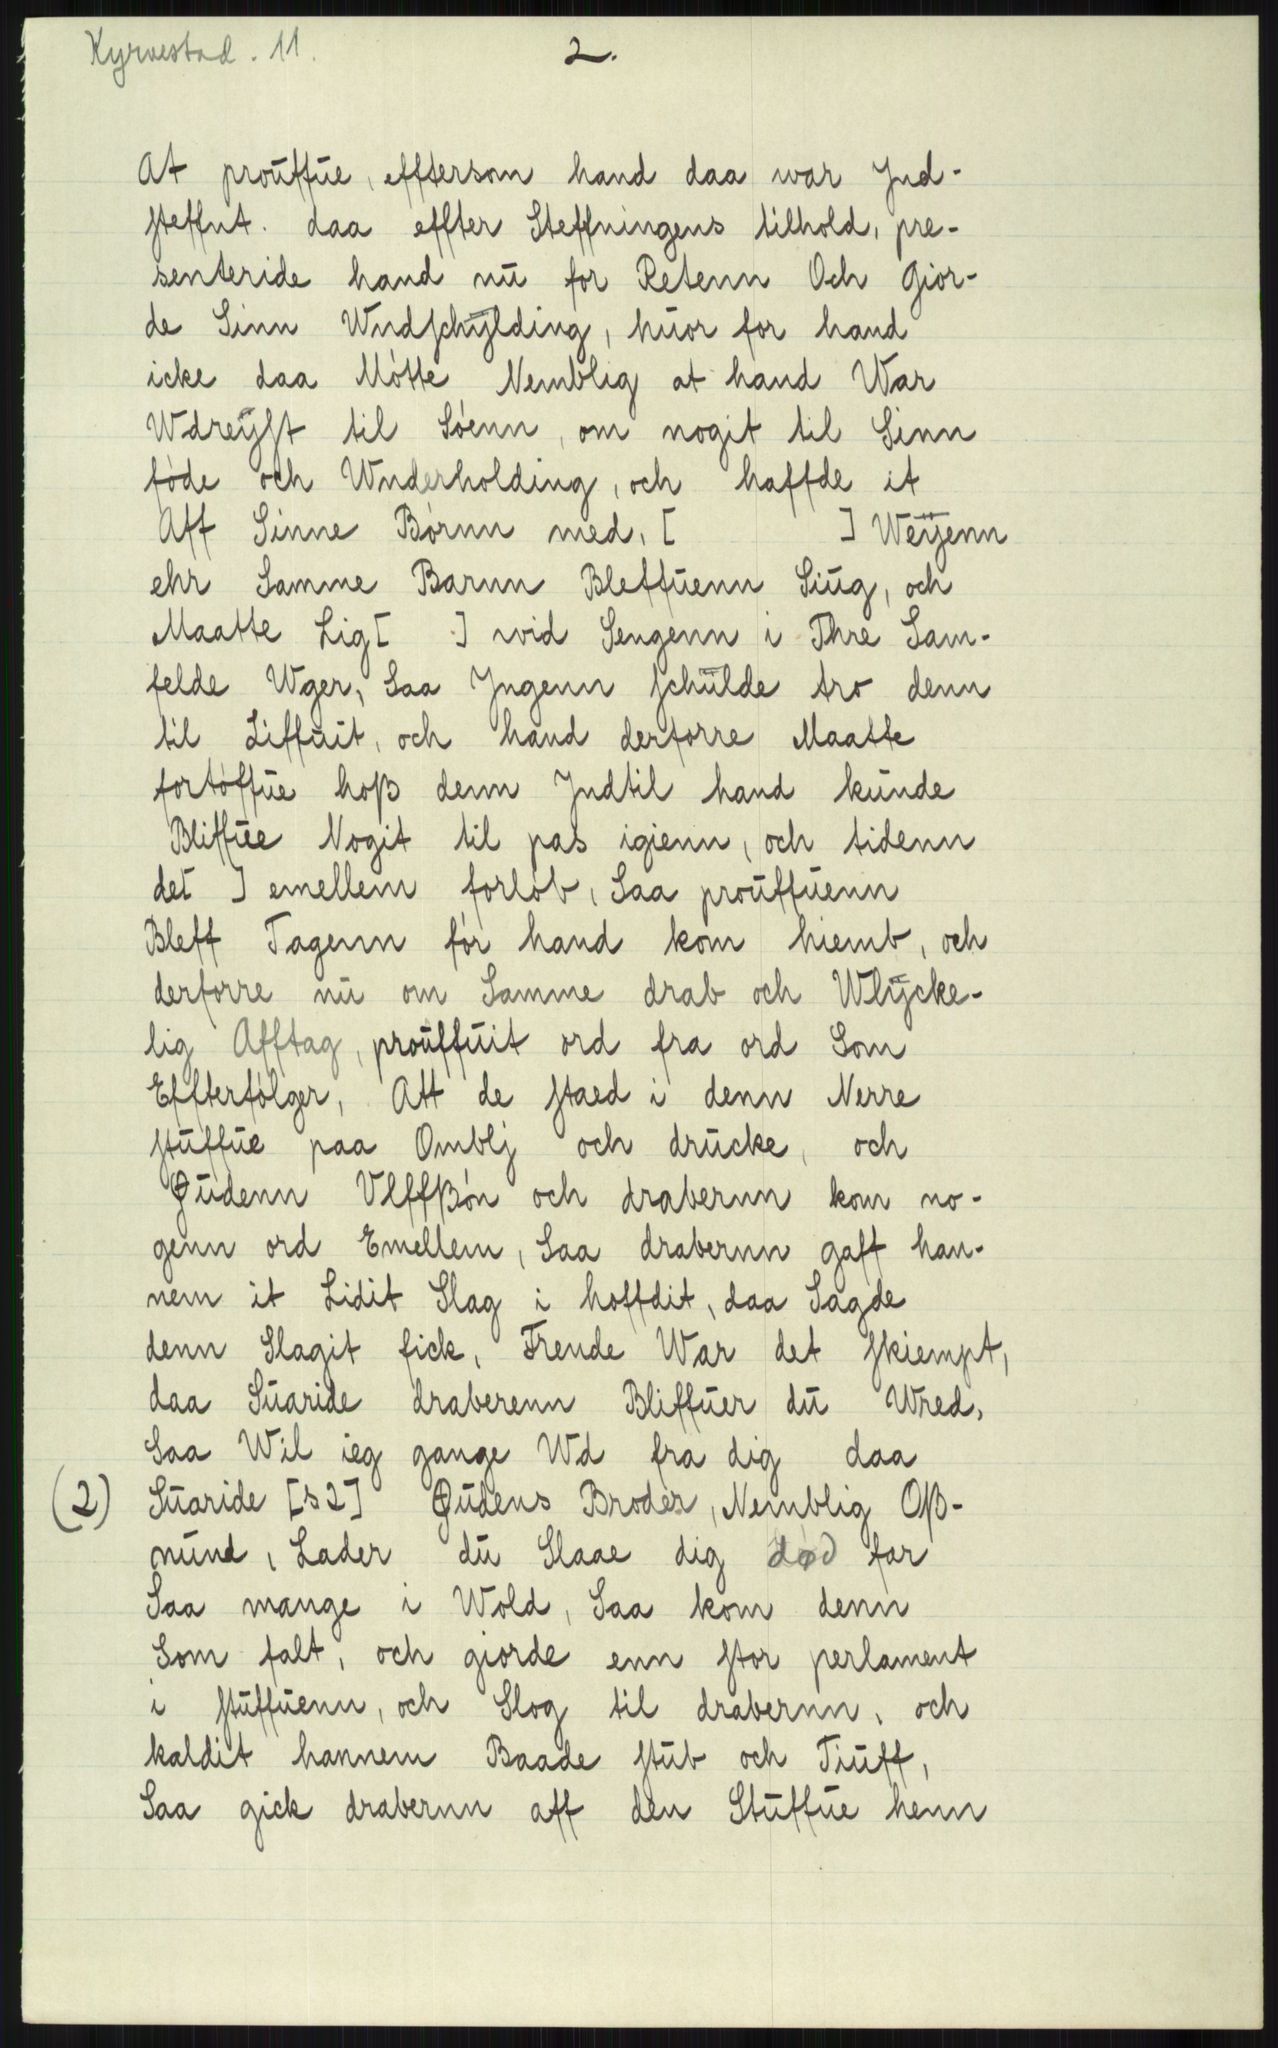 Kyrvestad. 11.
2.
At prouffue, efftersom hand daa war Jnd-
steffnt. daa effter Steffningens tilhold, pre-
senteride hand nu for Retenn Och Gior-
de Sinn Wndschylding, huor for hand
icke daa Mótte Nemblig at hand War
Wdreÿst til Sóenn, om nogit til Sinn
fóde och Wnderholding, och haffde it
Aff Sinne Bórnn med, [ ] Weÿenn
ehr Samme Barnn Bleffuenn Siug, och
Maatte Lig[ ] wid Sengenn i Thre Sam-
felde Wger, Saa Jngenn schulde tro denn
til Liffuit, och hand derforre Maatte
fortóffue hoß denn Jndtil hand kunde
Bliffue Nogit til pas igienn, och tidenn
de[ ] emellem forlób, Saa prouffuenn
Bleff Tagenn fór hand kom hiemb, och
derforre nu om Samme drab och Wlÿcke-
lig Afftag, prouffuit ord fra ord Som
Effterfólger, Att de staed i denn Nerre
stuffue paa Omblj och drucke, och
Gudenn Vlffßón och drabernn kom no-
genn ord Emellem, Saa drabernn gaff han-
nem it Lidit Slag i hoffdit, daa Sagde
denn Slagit fick, Frende War det skiempt,
daa Suaride draberenn Bliffuer du Wred,
Saa Wil ieg gange Wd fra dig daa
(2) Suaride [s 2] Gudens Broder, Nemblig Oß-
mund, Lader du Slaae dig død for
Saa mange i Wold, Saa kom denn
Som falt, och giorde enn stor perlament
i stuffuenn, och Slog til drabernn, och
kaldit hannem Baade stub och Tiuff,
Saa gick drabernn aff den Stuffue henn